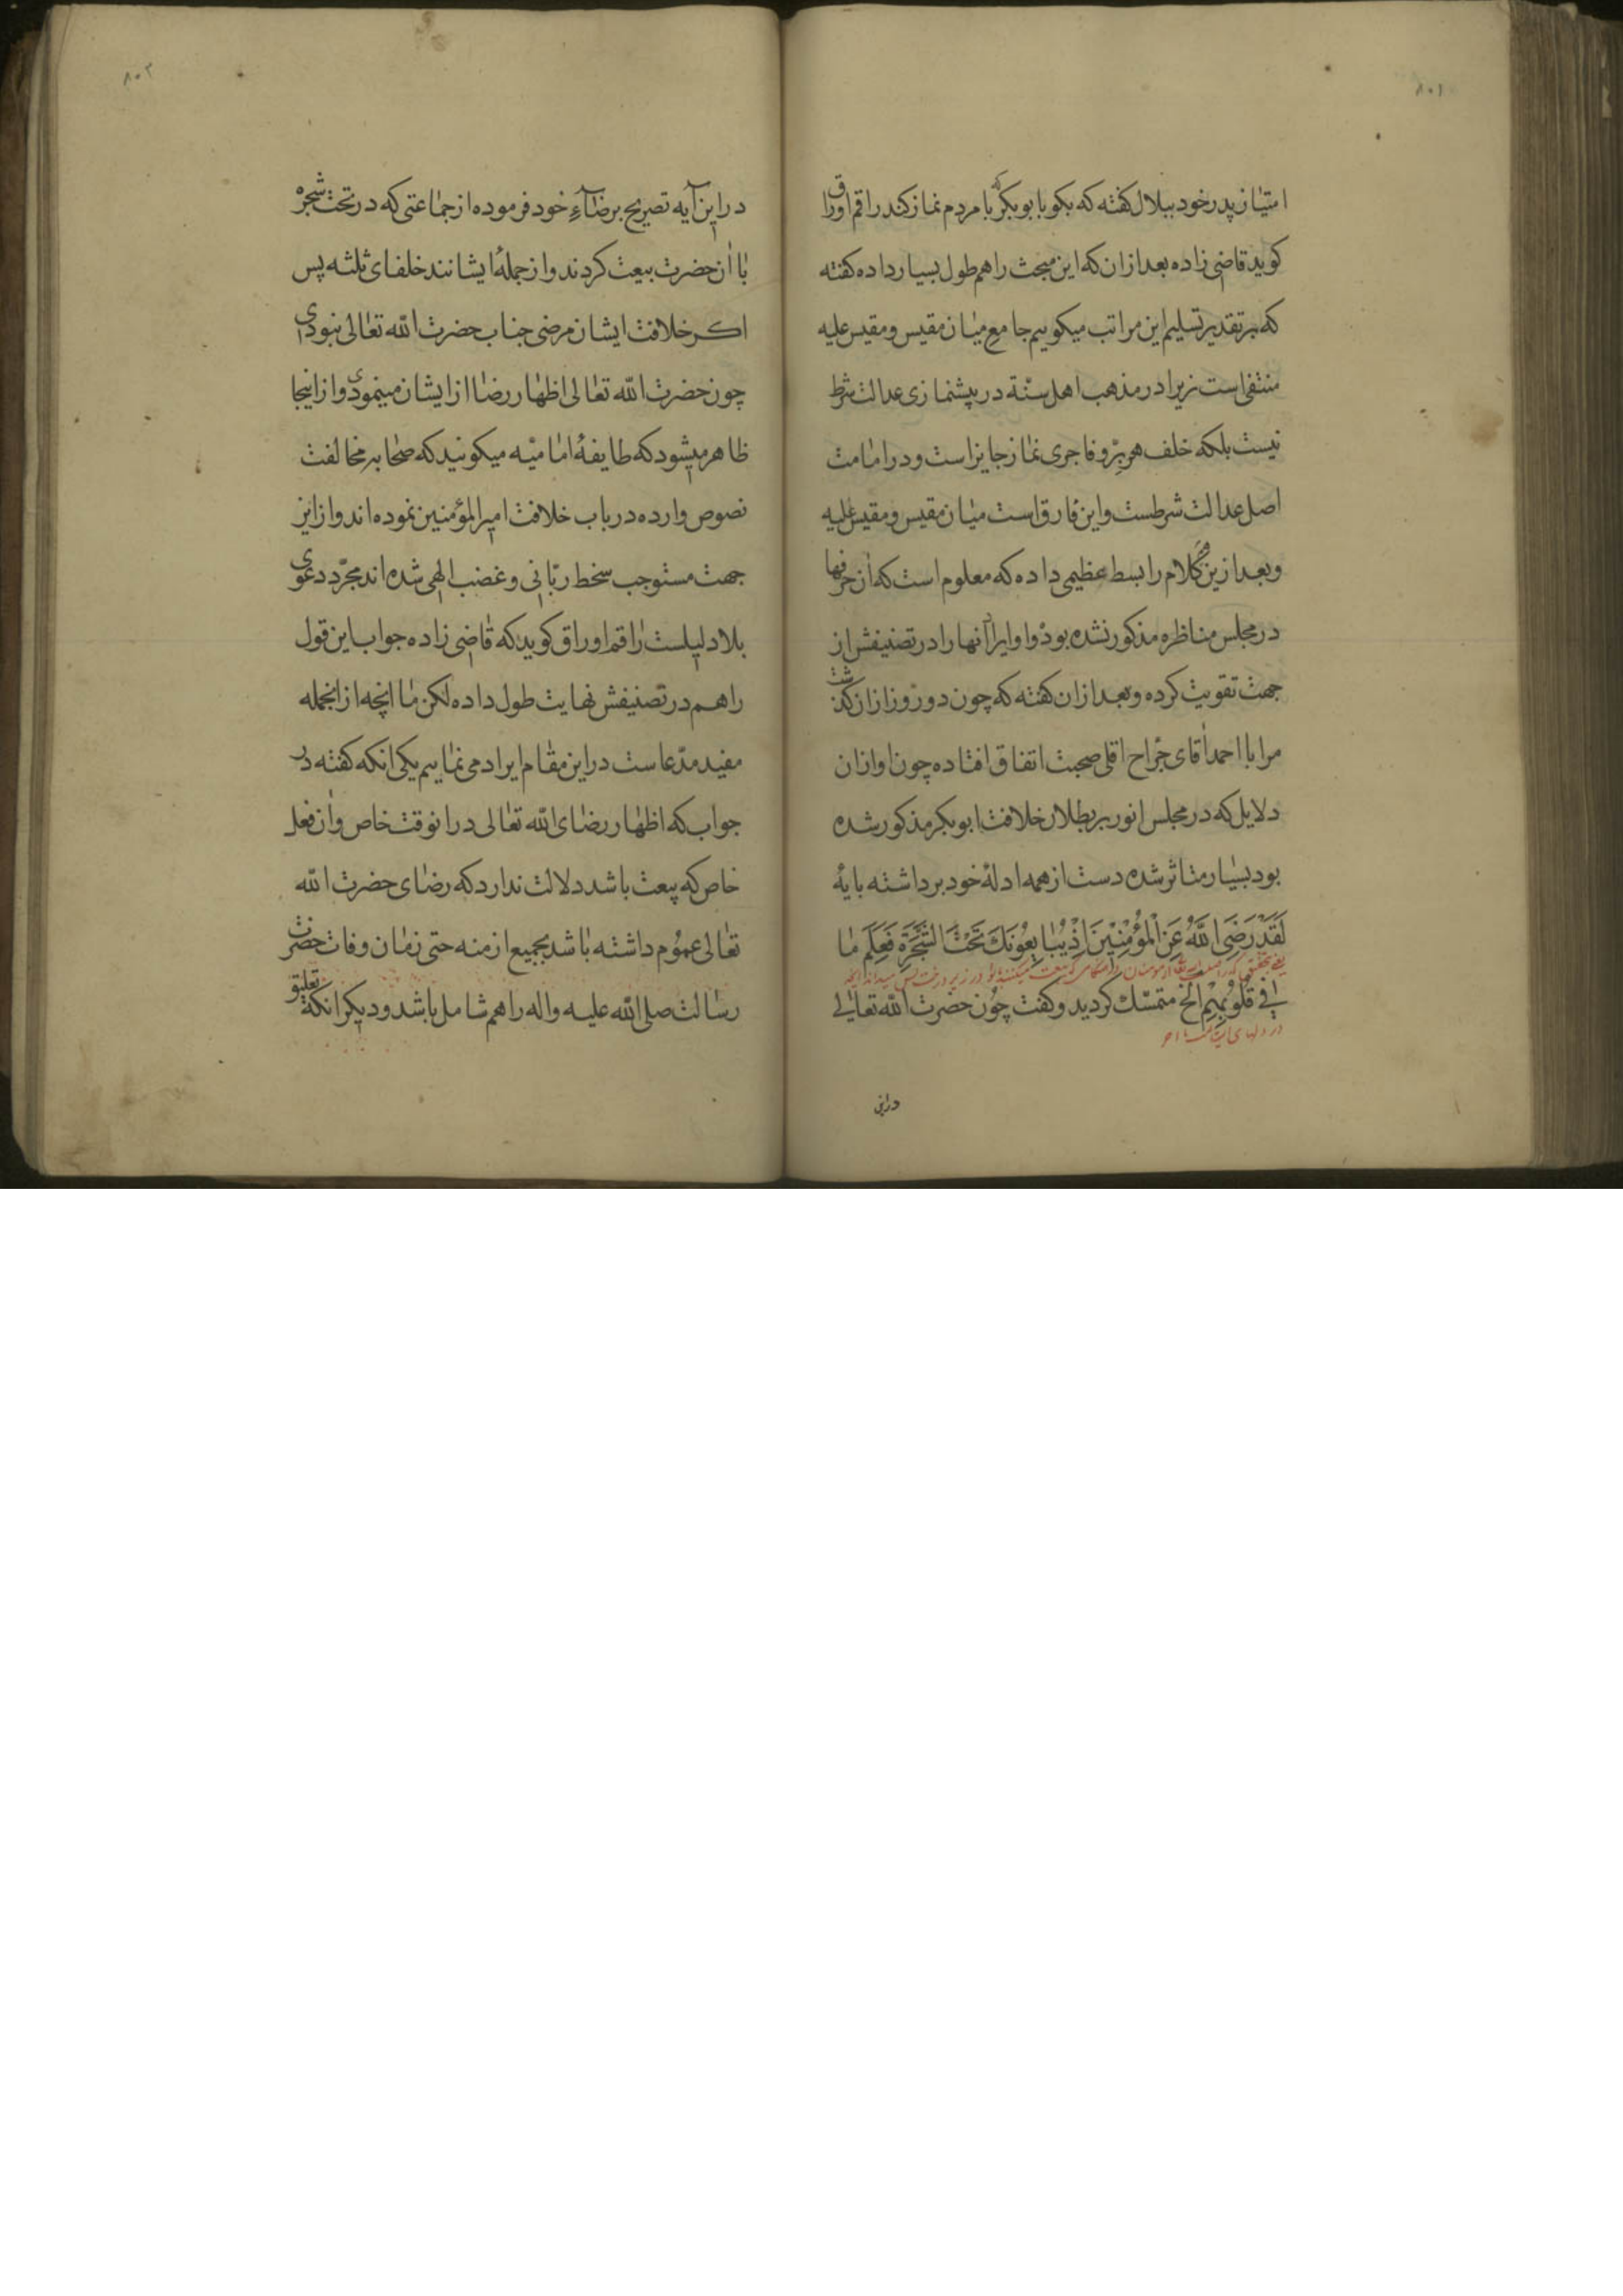 ۸۰۱
امتیاز پدر خود ببلال کفته که بکو با بوبکر که با مردم نماز کند راقم اوراق
کوید قاضی زاده بعد ازان که این مبحث را هم طول بسیار داده کفته
که بر تقدیر تسلیم این مراتب میکوییم جامع میان مقیس و مقیس علیه
منتفی است زیرا در مذهب اهل سنة در پیشنمازی عدالت شرط
نیست بلکه خلف هر بِرّ و فاجری نماز جایز است و در امامت
اصل عدالت شرطست و این فارق است میان مقیس و مقیس علیه
و بعد ازین کلام را بسط عظیمی داده که معلوم است که آن حرفها
در مجلس مناظره مذکور نشده بود و او ایراد آنها را در تصنیفش از
جهت تقویت کرده و بعد ازان کفته که چون دو روز ازان کذشت
مرا با احمد آقای جراح اقلی صحبت اتفاق افتاده چون او ازان
دلایل که در مجلس انور بر بطلان خلافت ابوبکر مذکور شده
بود بسیار متاثر شده دست از همه ادلهٔ خود برداشته بایهٔ
لَقَدْ رَضِیَ اللّٰهُ عَنِ الْمُؤْمِنِیْنَ اِذْ یُبَایِعُونَكَ تَحْتَ الشَّجَرَةِ فَعَلِمَ مَا
در زیر درخت پس میداند انچه
فِی قُلُوْبِهِمْ الخ متمسّك کردید و کفت چون حضرت اللّٰه تعالی
در دلهای ایشان است
دراین
۸۰۲
در این آیه تصریح برضآءِ خود فرموده از جماعتی که در تحت شجره
با آن حضرت بیعت کردند و از جملهٔ ایشانند خلفای ثلثه پس
اکر خلافت ایشان مرضی جناب حضرت اللّٰه تعالی نبودی
چون حضرت اللّٰه تعالی اظهار رضا از ایشان مینمودی و از اینجا
ظاهر میشود که طایفهٔ امامیّه میکونید که صحابه مخالفت
نصوص وارده در باب خلافت امیر المؤمنین نموده اند و از این
جهت مستوجب سخط ربّانی و غضب الهی شده اند مجرّد دعوی
بلا دلیلست راقم اوراق کوید که قاضی زاده جواب این قول
را هم در تصنیفش نهایت طول داده لکن ما انچه از انجمله
مفید مدّعاست در این مقام ایراد می نماییم یکی انکه کفته در
جواب که اظهار رضای اللّٰه تعالی در انوقت خاص و ان فعل
خاص که بیعت باشد دلالت ندارد که رضای حضرت اللّٰه
تعالی عموم داشته باشد بجمیع ازمنه حتی زمان وفات حضرت
رسالت صلی اللّٰه علیه و اله را هم شامل باشد و دیکر انکه تعلیق